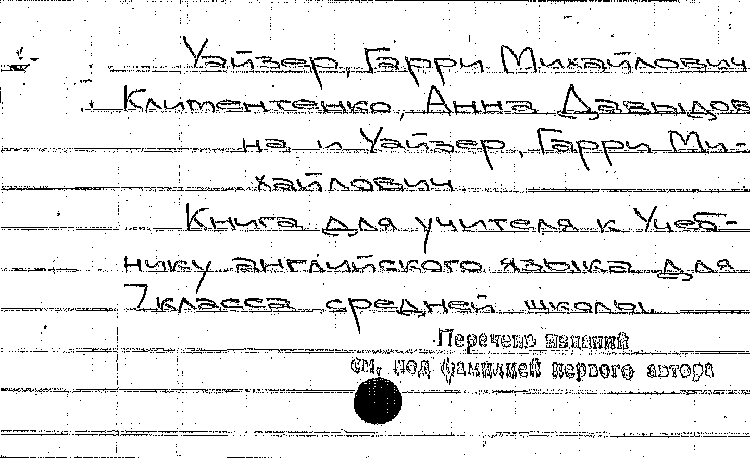 Уайзер, Гарри Михайлович
Климентенко, Анна Давыдов
на и Уайзер, Гарри Ми-
хайлович.
Книга для учителя к Учеб-
нику английского языка для
7 класса средней школы.
Перечень изданий
см. под фамилией первого автора